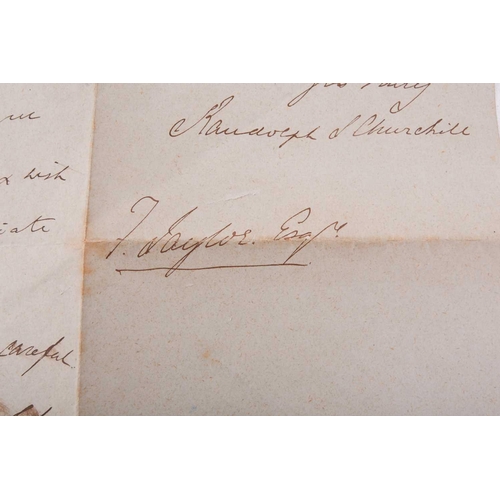 wish
careful
yrs truly
Randolph S Churchill
F. Taylor. Esqre